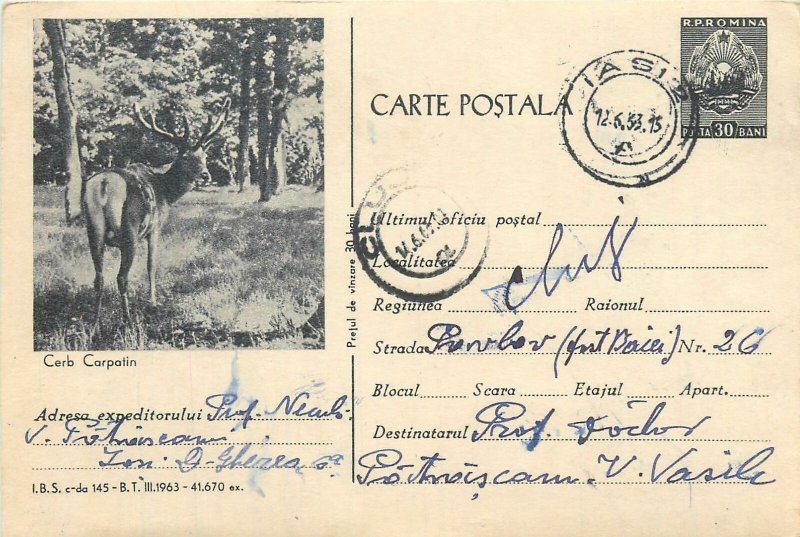 Cerb Carpatin
Adresa expeditorului Prof.
V.
Ion D. Gherea
I.B.S. c-da 145 - B.T. III.1963 - 41.670 ex.
Prețul de vînzare 30 bani
R.P.ROMINA
POSTA 30 BANI
IASI
12.6.63.15
CARTE POȘTALĂ
CLUJ
Ultimul oficiu poștal
Localitatea
Cluj
Regiunea Raionul
Strada Pavlov (fost Baiei) Nr. 26
Blocul Scara Etajul Apart.
Destinatarul Prof. Doctor
Pătrășcanu V. Vasile